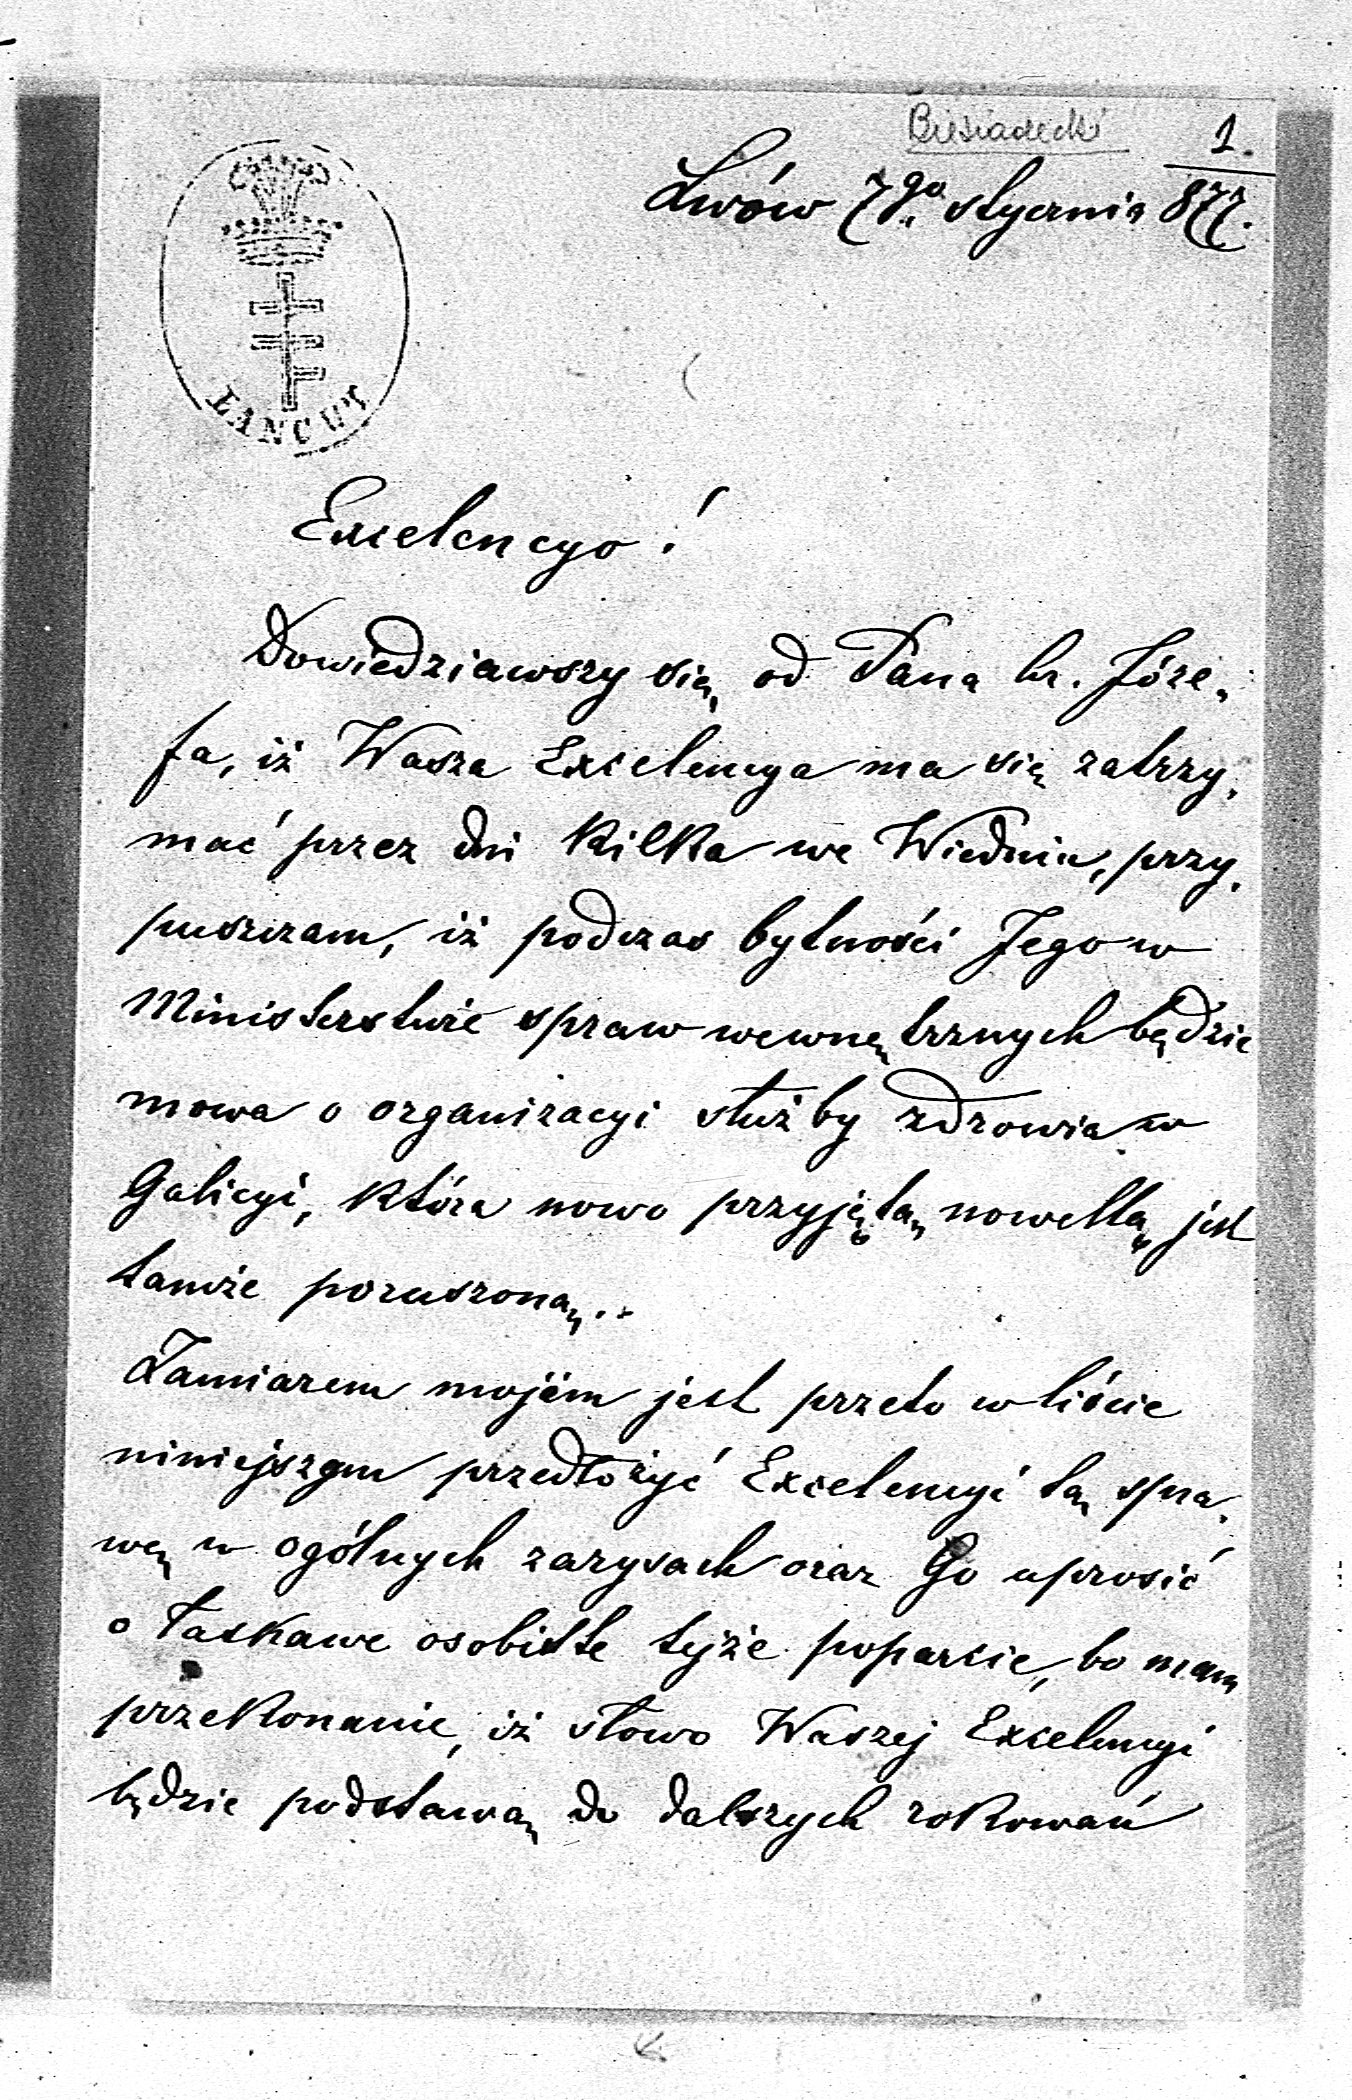 Biesiadecki
1.
Lwów 7go stycznia 877.
ŁANCUT
Excelencyo!
Dowiedziawszy się od Pana hr. Józe„
fa, iż Wasza Excelencya ma się zatrzy„
mać przez dni kilka we Wiedniu, przy„
puszczam, iż podczas bytności Jego w
Ministerstwie spraw wewnętrznych będzie
mowa o organizacyi służby zdrowia w
Galicyi, która nowo przyjętą nowellą jest
także poruszoną..
Zamiarem mojém jest przeto w liście
niniejszym przedłożyć Excelencyi tą spra„
wę w ogólnych zarysach oraz Go uprosić
o łaskawe osobiste tejże poparcie, bo mam
przekonanie, iż słowo Waszej Excelencyi
będzie podstawą do dalszych rokowań